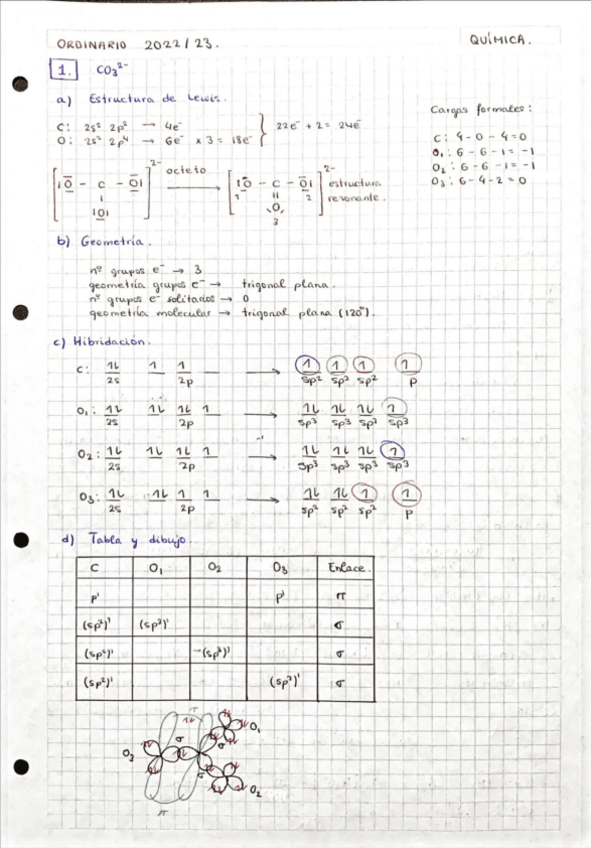 ORDINARIO 2022/23.
QUÍMICA.
1. CO₃²⁻
a) Estructura de Lewis.
C: 2s² 2p² → 4e⁻
O: 2s² 2p⁴ → 6e⁻ x 3 = 18e⁻ } 22e⁻ + 2 = 24e⁻
Cargas formales:
C: 4-0-4=0
O₁: 6-6-1=-1
O₂: 6-6-1=-1
O₃: 6-4-2=0
[|O - C - O|]²⁻ octeto → [|O - C - O|]²⁻ estructura
|O| 1 O 2 resonante.
3
b) Geometría.
nº grupos e⁻ → 3
geometría grupos e⁻ → trigonal plana.
nº grupos e⁻ solitarios → 0
geometría molecular → trigonal plana (120°).
c) Hibridación.
C: 1L 1 1 _ → 1 1 1 1
2s 2p sp² sp² sp² p
O₁: 1L 1L 1L 1 → 1L 1L 1L 1
2s 2p sp³ sp³ sp³ sp³
O₂: 1L 1L 1L 1 → 1L 1L 1L 1
2s 2p sp³ sp³ sp³ sp³
O₃: 1L 1L 1 1 → 1L 1L 1 1
2s 2p sp² sp² sp² p
d) Tabla y dibujo
C O₁ O₂ O₃ Enlace.
p¹ p¹ π
(sp²)¹ (sp³)¹ σ
(sp²)¹ (sp³)¹ σ
(sp²)¹ (sp²)¹ σ
π
O₁
σ σ
O₃
σ
O₂
π